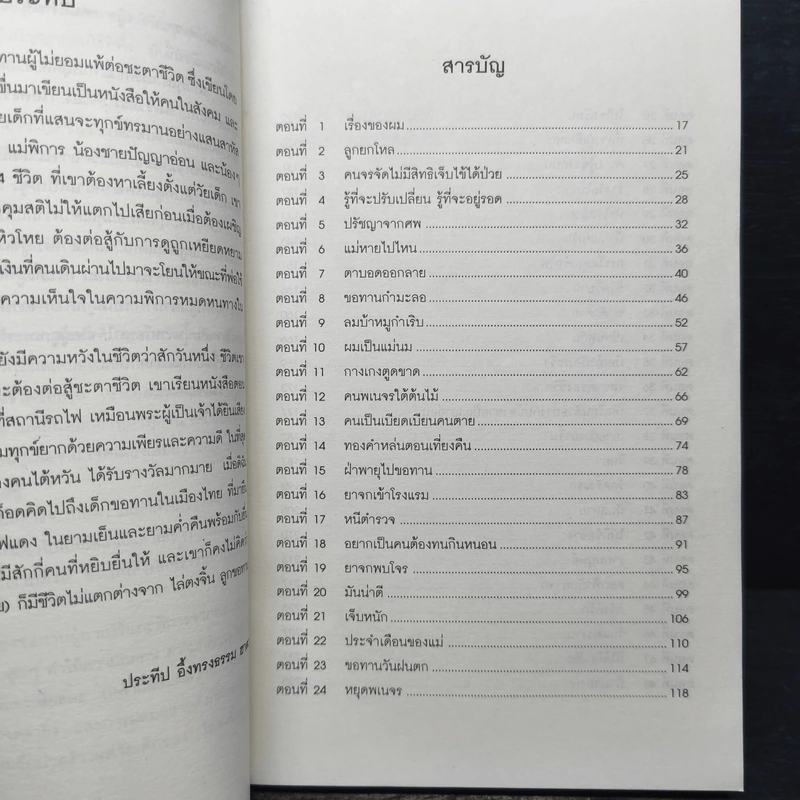 ทานผู้ไม่ยอมแพ้ต่อชะตาชีวิต ซึ่งเขียนโดย
ขึ้นมาเขียนเป็นหนังสือให้คนในสังคม และ
ยเด็กที่แสนจะทุกข์ทรมานอย่างแสนสาหัส
แม่พิการ น้องชายปัญญาอ่อน และน้องๆ
4 ชีวิต ที่เขาต้องหาเลี้ยงตั้งแต่วัยเด็ก เขา
คุมสติไม่ให้แตกไปเสียก่อนเมื่อต้องเผชิญ
หิวโหย ต้องต่อสู้กับการดูถูกเหยียดหยาม
เงินที่คนเดินผ่านไปมาจะโยนให้ขณะที่พ่อใช้
ความเห็นใจในความพิการหมดหนทางใน
ยังมีความหวังในชีวิตว่าสักวันหนึ่ง ชีวิตเขา
ะต้องต่อสู้ชะตาชีวิต เขาเรียนหนังสือตอน
ที่สถานีรถไฟ เหมือนพระผู้เป็นเจ้าได้ยินเสียง
มทุกข์ยากด้วยความเพียรและความดี ในที่สุด
งคนไต้หวัน ได้รับรางวัลมากมาย เมื่อดิฉัน
ก็อดคิดไปถึงเด็กขอทานในเมืองไทย ที่มายืน
ฟแดง ในยามเย็นและยามค่ำคืนพร้อมกับยื่น
มีสักกี่คนที่หยิบยื่นให้ และเขาก็คงไม่คิดว่า
ย) ก็มีชีวิตไม่แตกต่างจาก ไล่ตงจิ้น ลูกขอทาน
ประทีป อึ้งทรงธรรม ฮาตะ
สารบัญ
ตอนที่ 1 เรื่องของผม 17
ตอนที่ 2 ลูกยกโหล 21
ตอนที่ 3 คนจรจัดไม่มีสิทธิเจ็บไข้ได้ป่วย 25
ตอนที่ 4 รู้ที่จะปรับเปลี่ยน รู้ที่จะอยู่รอด 28
ตอนที่ 5 ปรัชญาจากศพ 32
ตอนที่ 6 แม่หายไปไหน 36
ตอนที่ 7 ตาบอดออกลาย 40
ตอนที่ 8 ขอทานกำมะลอ 46
ตอนที่ 9 ลมบ้าหมูกำเริบ 52
ตอนที่ 10 ผมเป็นแม่นม 57
ตอนที่ 11 กางเกงตูดขาด 62
ตอนที่ 12 คนพเนจรใต้ต้นไม้ 66
ตอนที่ 13 คนเป็นเบียดเบียนคนตาย 69
ตอนที่ 14 ทองคำหล่นตอนเที่ยงคืน 74
ตอนที่ 15 ฝ่าพายุไปขอทาน 78
ตอนที่ 16 ยาจกเข้าโรงแรม 83
ตอนที่ 17 หนีตำรวจ 87
ตอนที่ 18 อยากเป็นคนต้องทนกินหนอน 91
ตอนที่ 19 ยาจกพบโจร 95
ตอนที่ 20 มันน่าตี 99
ตอนที่ 21 เจ็บหนัก 106
ตอนที่ 22 ประจำเดือนของแม่ 110
ตอนที่ 23 ขอทานวันฝนตก 114
ตอนที่ 24 หยุดพเนจร 118